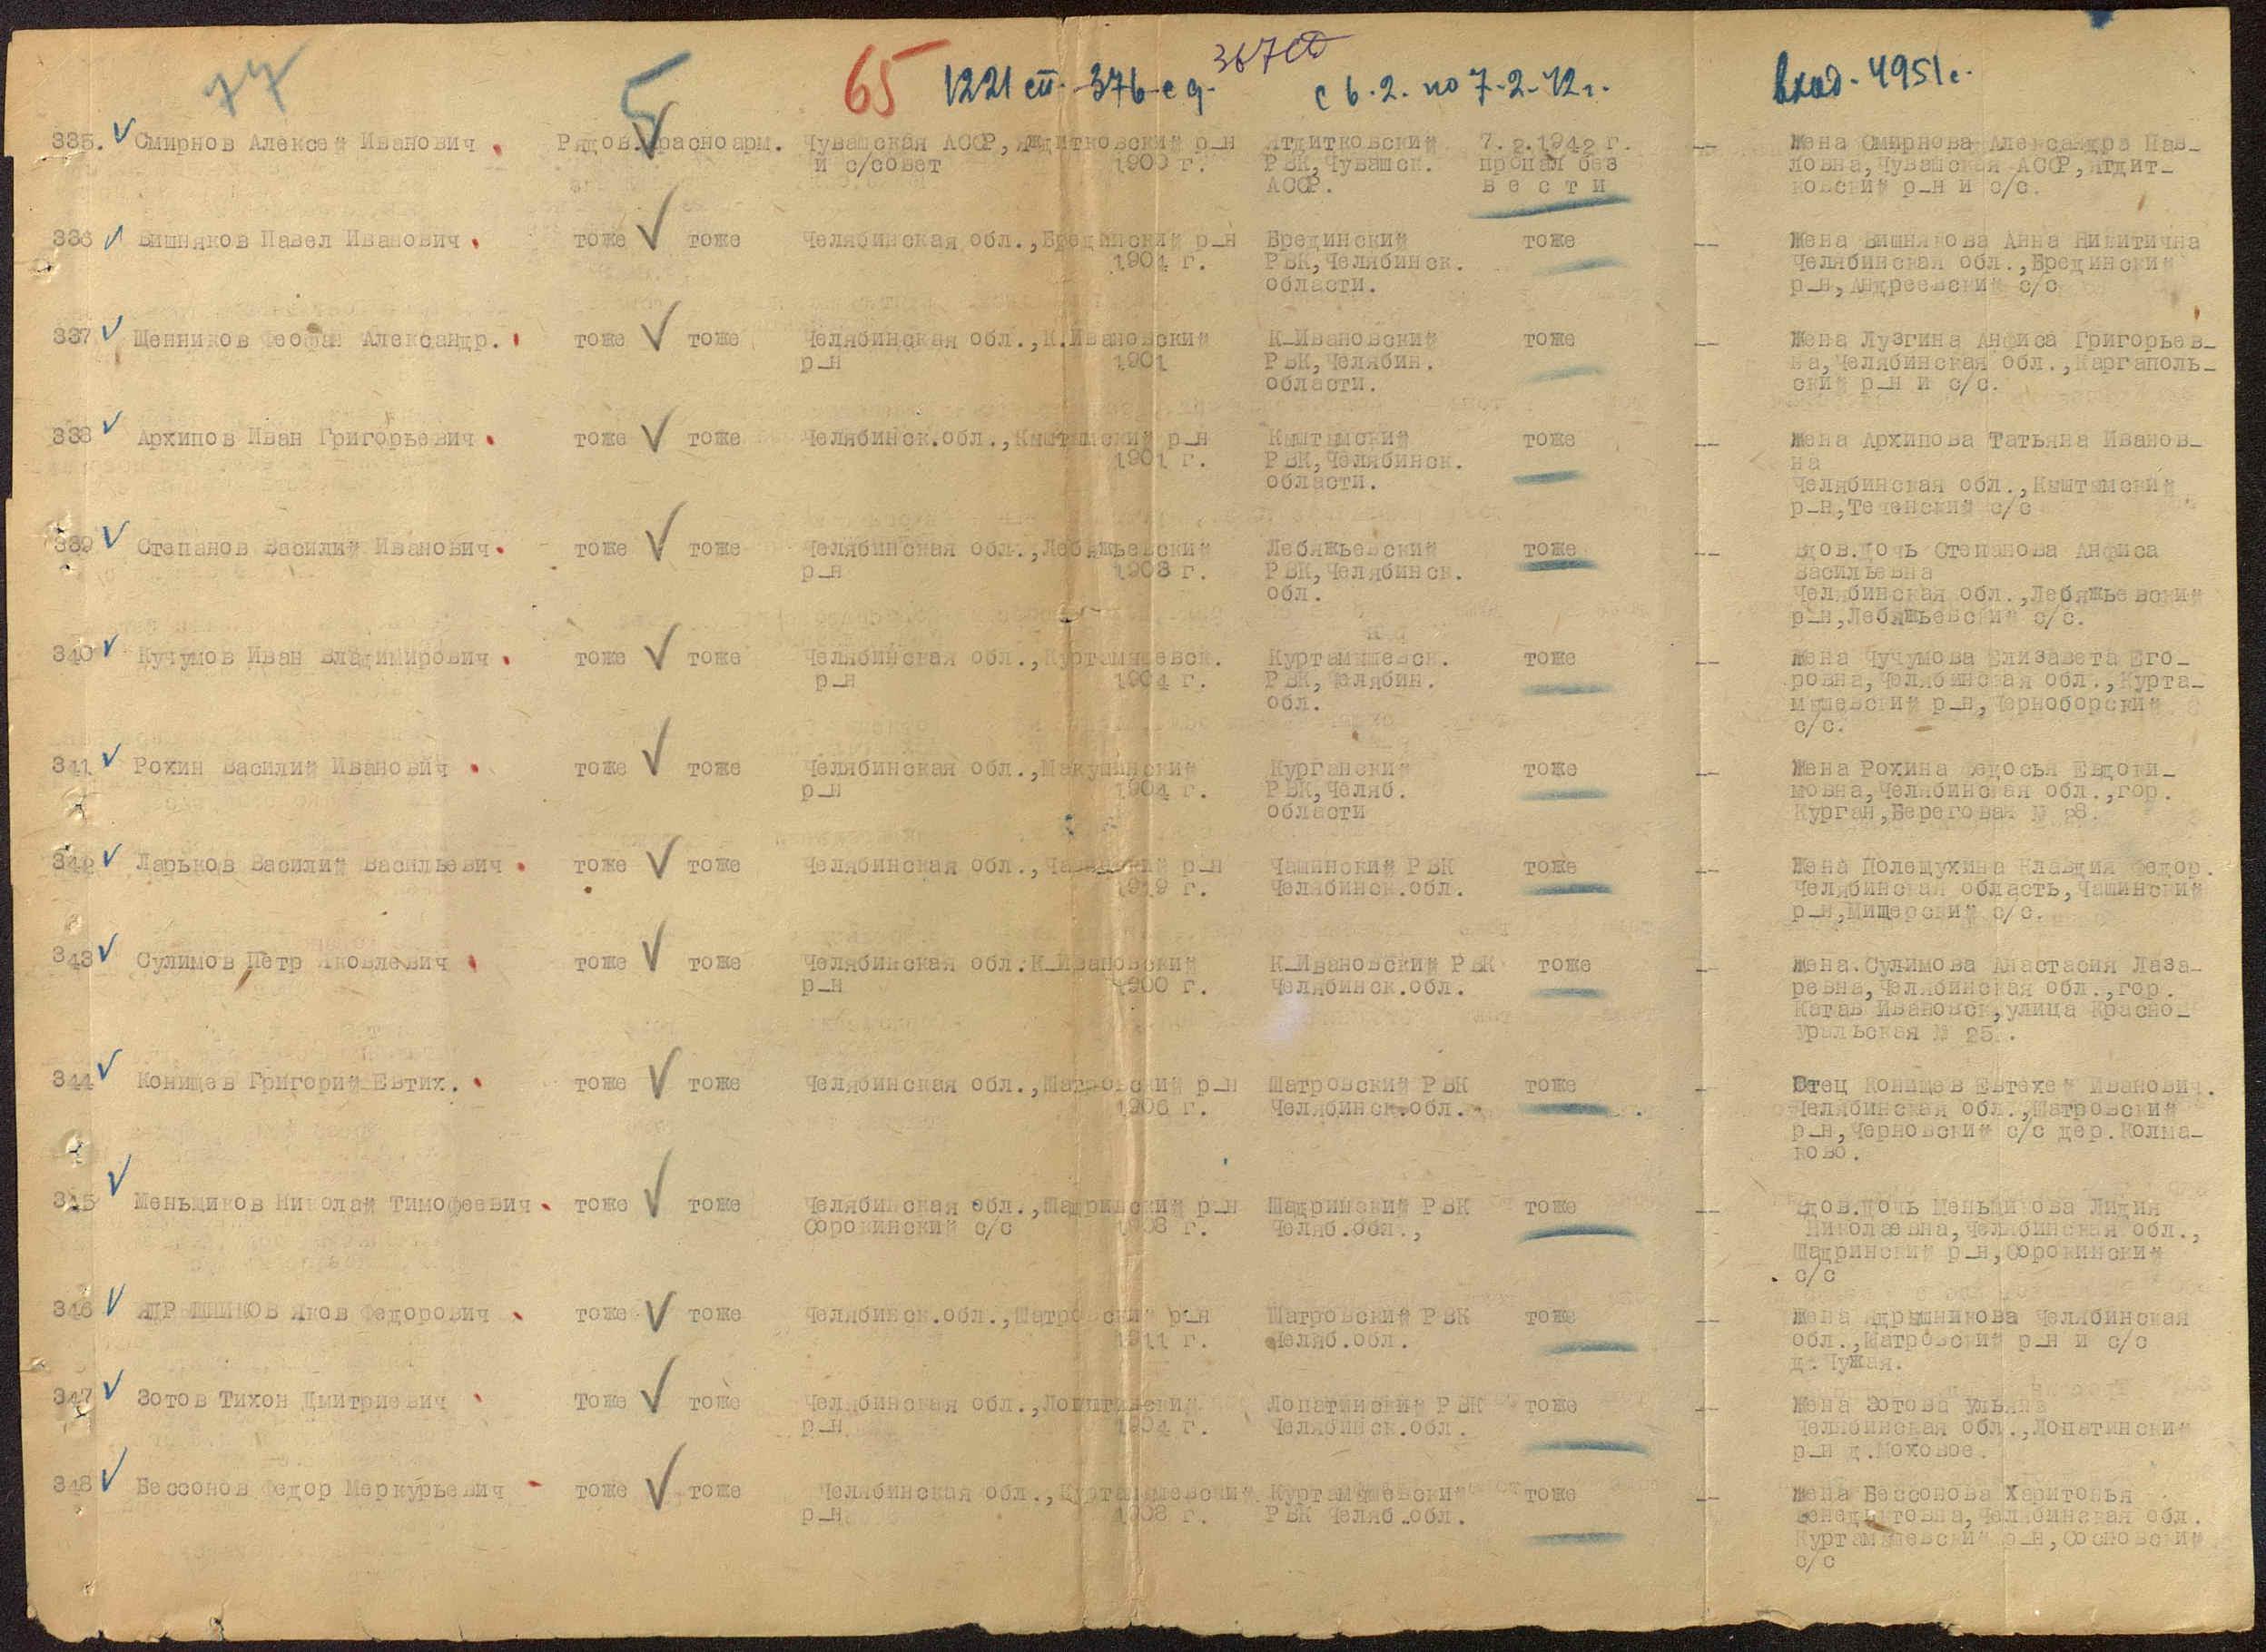 77 5 65 1221 сп. 376 с д. 367 сд с 6.2. по 7.2.42 г. вход. 4951 с.
335. Смирнов Алексей Иванович. Рядов. красноарм. Чувашская АССР, Ятдитковский р-н Ятдитковский 7.2.1942 г. -- Жена Смирнова Александра Пав-
и с/совет 1900 г. РВК, Чувашск. пропал без ловна, Чувашская АССР, Ятдит-
АССР. вести ковский р-н и с/с.
336 Вишняков Павел Иванович. тоже тоже Челябинская обл., Брединский р-н Брединский тоже -- Жена Вишнякова Анна Никитична
1904 г. РВК, Челябинск. Челябинская обл., Брединский
области. р-н, Андреевский с/с
337 Щенников Феофан Александр. тоже тоже Челябинская обл., К.Ивановский К-Ивановский тоже -- Жена Лузгина Анфиса Григорьев-
р-н 1901 РВК, Челябин. на, Челябинская обл., Каргаполь-
области. ский р-н и с/с.
338 Архипов Иван Григорьевич. тоже тоже Челябинск.обл., Кыштымский р-н Кыштымский тоже -- Жена Архипова Татьяна Иванов-
1901 г. РВК, Челябинск. на
области. Челябинская обл., Кыштымский
р-н, Теченский с/с
339 Степанов Василий Иванович. тоже тоже Челябинская обл., Лебяжьевский Лебяжьевский тоже -- вдов.дочь Степанова Анфиса
р-н 1903 г. РВК, Челябинск. Васильевна
обл. Челябинская обл., Лебяжьевский
р-н, Лебяжьевский с/с.
340 Кучумов Иван Владимирович. тоже тоже Челябинская обл., Куртамышевск. Куртамышевск. тоже -- Жена Чучумова Елизавета Его-
р-н 1904 г. РВК, Челябин. ровна, Челябинская обл., Курта-
обл. мышевский р-н, Черноборский
с/с.
341 Рохин Василий Иванович. тоже тоже Челябинская обл., Макушинский Курганский тоже -- Жена Рохина Федосья Евдоки-
р-н 1904 г. РВК, Челяб. мовна, Челябинская обл., гор.
области Курган, Береговая № 28.
342 Ларьков Василий Васильевич. тоже тоже Челябинская обл., Чашинский р-н Чашинский РВК тоже -- Жена Полещухина Клавдия Федор.
1919 г. Челябинск.обл. Челябинская область, Чашинский
р-н, Мищерский с/с.
343 Сулимов Петр Яковлевич. тоже тоже Челябинская обл. К-Ивановский К-Ивановский РВК тоже -- Жена Сулимова Анастасия Лаза-
р-н 1900 г. Челябинск.обл. ревна, Челябинская обл., гор.
Катав Ивановск, улица Красно-
уральская № 25.
344 Конищев Григорий Евтих. тоже тоже Челябинская обл., Шатровский р-н Шатровский РВК тоже -- Отец Конищев Евтехей Иванович.
1906 г. Челябинск.обл. Челябинская обл., Шатровский
р-н, Черновский с/с дер. Колма-
ково.
345 Меньщиков Николай Тимофеевич. тоже тоже Челябинская обл., Шадринский р-н Шадринский РВК тоже -- вдов.дочь Меньщикова Лидия
Сорокинский с/с 1908 г. Челяб.обл., Николаевна, Челябинская обл.,
Шадринский р-н, Сорокинский
с/с
346 ЯДРЫШНИКОВ Яков Федорович тоже тоже Челябинск.обл., Шатровский р-н Шатровский РВК тоже -- Жена Ядрышникова Челябинская
1911 г. Челяб.обл. обл., Шатровский р-н и с/с
д. Чужая.
347 Зотов Тихон Дмитриевич Тоже тоже Челябинская обл., Лопатинский Лопатинский РВК тоже -- Жена Зотова Ульяна
р-н 1904 г. Челябинск.обл. Челябинская обл., Лопатинский
р-н д.Моховое.
348 Бессонов Федор Меркурьевич тоже тоже Челябинская обл., Куртамышевский Куртамышевский тоже -- Жена Бессонова Харитонья
р-н 1908 г. РВК Челяб.обл. Венедиктовна, Челябинская обл.
Куртамышевский р-н, Сосновский
с/с